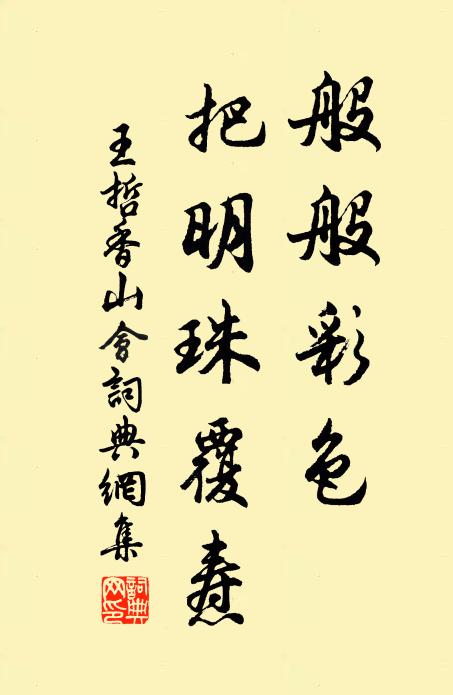 般般彩色
把明珠覆燾
王哲香山會詞典網集
詞典網印